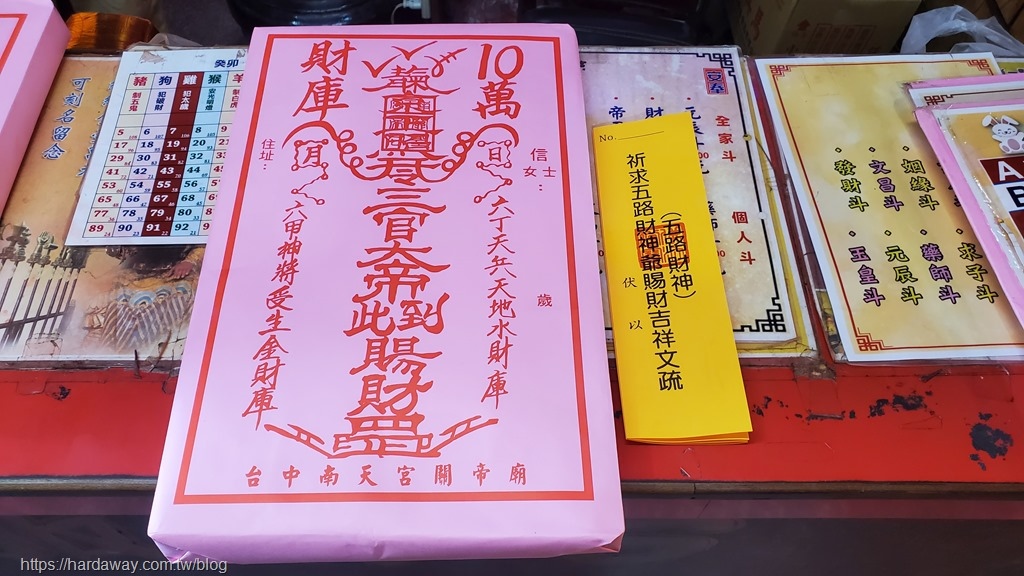 財庫
10萬
三官大帝到此賜財
住址：
信
士
女
：
歲
月
日
六丁天兵天地水財庫
六甲神將受生金財庫
台中南天宮關帝廟
No.
祈求五路財神爺賜財吉祥文疏
（五路財神）
伏
以
可刻名留念
癸卯
豬 狗 雞 猴 羊
犯破財
犯太歲
5 6 7 8
17 18 19 20
29 30 31 32
41 42 43 44
53 54 55 56
65 66 67 68
77 78 79 80
89 90 91 92
全家斗
個人斗
發財斗
文昌斗
姻緣斗
玉皇斗
元辰斗
藥師斗
求子斗
https://hardaway.com.tw/blog